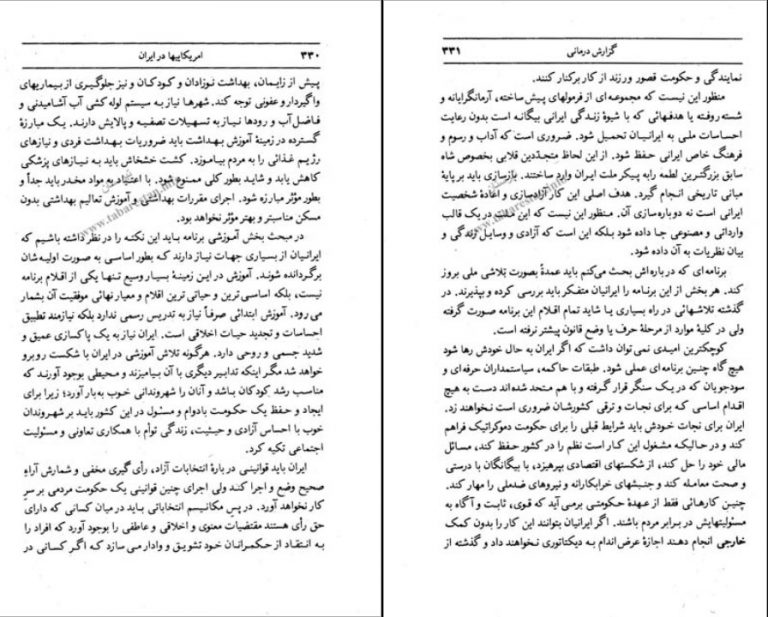 ۳۳۰ امریکاییها در ایران
پیش از زایمان، بهداشت نوزادان و کودکان و نیز جلوگیری از بیماریهای
واگیردار و عفونی توجه کند. شهرها نیاز به سیستم لوله کشی آب آشامیدنی و
فاضل آب و رودها نیاز به تسهیلات تصفیه و پالایش دارند. یک مبارزهٔ
گسترده در زمینهٔ آموزش بهداشت باید ضروریات بهداشت فردی و نیازهای
رژیم غذائی را به مردم بیاموزد. کشت خشخاش باید به نیازهای پزشکی
کاهش یابد و شاید بطور کلی ممنوع شود. با اعتیاد به مواد مخدر باید جداً و
بطور مؤثر مبارزه شود. اجرای مقررات بهداشتی و آموزش تعالیم بهداشتی بدون
مسکن مناسبتر و بهتر مؤثر نخواهد بود.
در مبحث بخش آموزشی برنامه باید این نکته را در نظر داشته باشیم که
ایرانیان از بسیاری جهات نیاز دارند که بطور اساسی به صورت اولیه شان
برگردانده شوند. آموزش در این زمینهٔ بسیار وسیع تنها یکی از اقلام برنامه
نیست، بلکه اساسی ترین و حیاتی ترین اقلام و معیار نهائی موفقیت آن بشمار
می رود. آموزش ابتدائی صرفاً نیاز به تدریس رسمی ندارد بلکه نیازمند تطبیق
احساسات و تجدید حیات اخلاقی است. ایران نیاز به یک پاکسازی عمیق و
شدید جسمی و روحی دارد. هرگونه تلاش آموزشی در ایران با شکست روبرو
خواهد شد مگر اینکه تدابیر دیگری با آن بیامیزند و محیطی بوجود آورند که
مناسب رشد کودکان باشد و آنان را شهروندانی خوب به بار آورد؛ زیرا برای
ایجاد و حفظ یک حکومت بادوام و مسئول در این کشور باید بر شهروندان
خوب با احساس آزادی و حیثیت، زندگی توأم با همکاری تعاونی و مسئولیت
اجتماعی تکیه کرد.
ایران باید قوانینی در بارهٔ انتخابات آزاد، رأی گیری مخفی و شمارش آراءِ
صحیح وضع و اجرا کند ولی اجرای چنین قوانینی یک حکومت مردمی بر سر
کار نخواهد آورد. در پس مکانیسم انتخاباتی باید در میان کسانی که دارای
حق رأی هستند مقتضیات معنوی و اخلاقی و عاطفی را بوجود آورد که افراد را
به انتقاد از حکمرانان خود تشویق و وادار می سازد که اگر کسانی در
گزارش درمانی ۳۳۱
نمایندگی و حکومت قصور ورزند از کار برکنار کنند.
منظور این نیست که مجموعه ای از فرمولهای پیش ساخته، آرمانگرایانه و
شسته رفته یا هدفهائی که با شیوهٔ زندگی ایرانی بیگانه است بدون رعایت
احساسات ملی به ایرانیان تحمیل شود. ضروری است که آداب و رسوم و
فرهنگ خاص ایرانی حفظ شود. از این لحاظ متجدّدین قلابی بخصوص شاه
سابق بزرگترین لطمه را به پیکر ملت ایران وارد ساختند. بازسازی باید بر پایهٔ
مبانی تاریخی انجام گیرد. هدف اصلی این کار آزادسازی و اعادهٔ شخصیت
ایرانی است نه دوباره سازی آن. منظور این نیست که این ملت در یک قالب
وارداتی و مصنوعی جا داده شود بلکه این است که آزادی و وسایل زندگی و
بیان نظریات به آن داده شود.
برنامه ای که در باره اش بحث می کنم باید عمدةً بصورت تلاشی ملی بروز
کند. هر بخش از این برنامه را ایرانیان متفکر باید بررسی کرده و بپذیرند. در
گذشته تلاشهائی در راه بسیاری یا شاید تمام اقلام این برنامه صورت گرفته
ولی در کلیهٔ موارد از مرحلهٔ حرف یا وضع قانون پیشتر نرفته است.
کوچکترین امیدی نمی توان داشت که اگر ایران به حال خودش رها شود
هیچ گاه چنین برنامه ای عملی شود. طبقات حاکمه، سیاستمداران حرفه ای و
سودجویان که در یک سنگر قرار گرفته و با هم متحد شده اند دست به هیچ
اقدام اساسی که برای نجات و ترقی کشورشان ضروری است نخواهند زد.
ایران برای نجات خودش باید شرایط قبلی را برای حکومت دموکراتیک فراهم
کند و در حالیکه مشغول این کار است نظم را در کشور حفظ کند، مسائل
مالی خود را حل کند، از شکستهای اقتصادی بپرهیزد، با بیگانگان با درستی
و صحت معامله کند و جنبشهای خرابکارانه و نیروهای ضدملی را مهار کند.
چنین کارهائی فقط از عهدهٔ حکومتی برمی آید که قوی، ثابت و آگاه به
مسئولیتهایش در برابر مردم باشند. اگر ایرانیان بتوانند این کار را بدون کمک
خارجی انجام دهند اجازهٔ عرض اندام به دیکتاتوری نخواهند داد و گذشته از